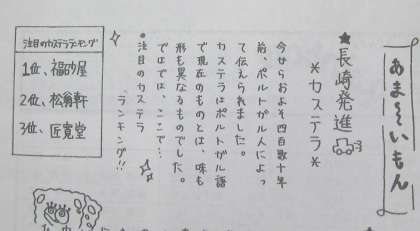 あま〜いもん
★長崎発進
＊カステラ＊
今からおよそ四百数十年
前、ポルトガル人によっ
て伝えられました。
カステラはポルトガル語
で現在のものとは、味も
形も異なるものでした。
ではでは、ここで…
●注目のカステラ
ランキング!!
注目のカステラランキング
1位、福砂屋
2位、松翁軒
3位、匠寛堂